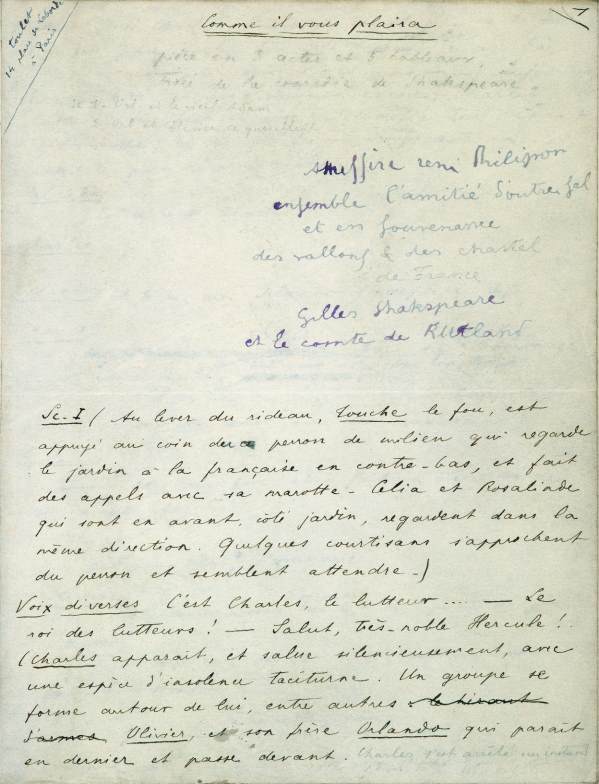 toulet
14 place de Laborde
à Paris
1
Comme il vous plaira
pièce en 3 actes et 5 tableaux,
tirée de la comédie de Shakspeare
A Messire remi Philipon
ensemble l'amitié d'outre
et en souvenance
des vallons & des chastel
de France
Gilles Shakspeare
et le comte de Rutland
Sc. I ( Au lever du rideau, Touche le fou, est
appuyé au coin du perron de milieu qui regarde
le jardin à la française en contre-bas, et fait
des appels avec sa marotte - Célia et Rosalinde
qui sont en avant, côté jardin, regardent dans la
même direction. Quelques courtisans s'approchent
du perron et semblent attendre -)
Voix diverses C'est Charles, le lutteur .... — Le
roi des lutteurs ! — Salut, très-noble Hercule !
(Charles apparait, et salue silencieusement, avec
une espèce d'insolence taciturne. Un groupe se
forme autour de lui, entre autres
d'armes Olivier, et son frère Orlando qui paraît
en dernier et passe devant. Charles s'est arrêté un instant